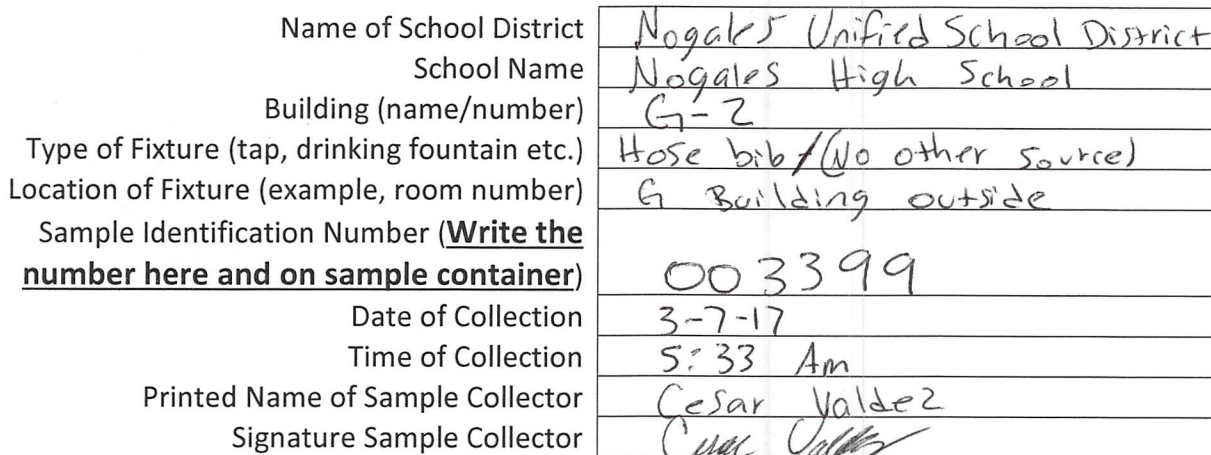 Name of School District Nogales Unified School District
School Name Nogales High School
Building (name/number) G-2
Type of Fixture (tap, drinking fountain etc.) Hose bib/(No other source)
Location of Fixture (example, room number) G Building outside
Sample Identification Number (Write the
number here and on sample container) 003399
Date of Collection 3-7-17
Time of Collection 5:33 Am
Printed Name of Sample Collector Cesar Valdez
Signature Sample Collector Cesar Valdez